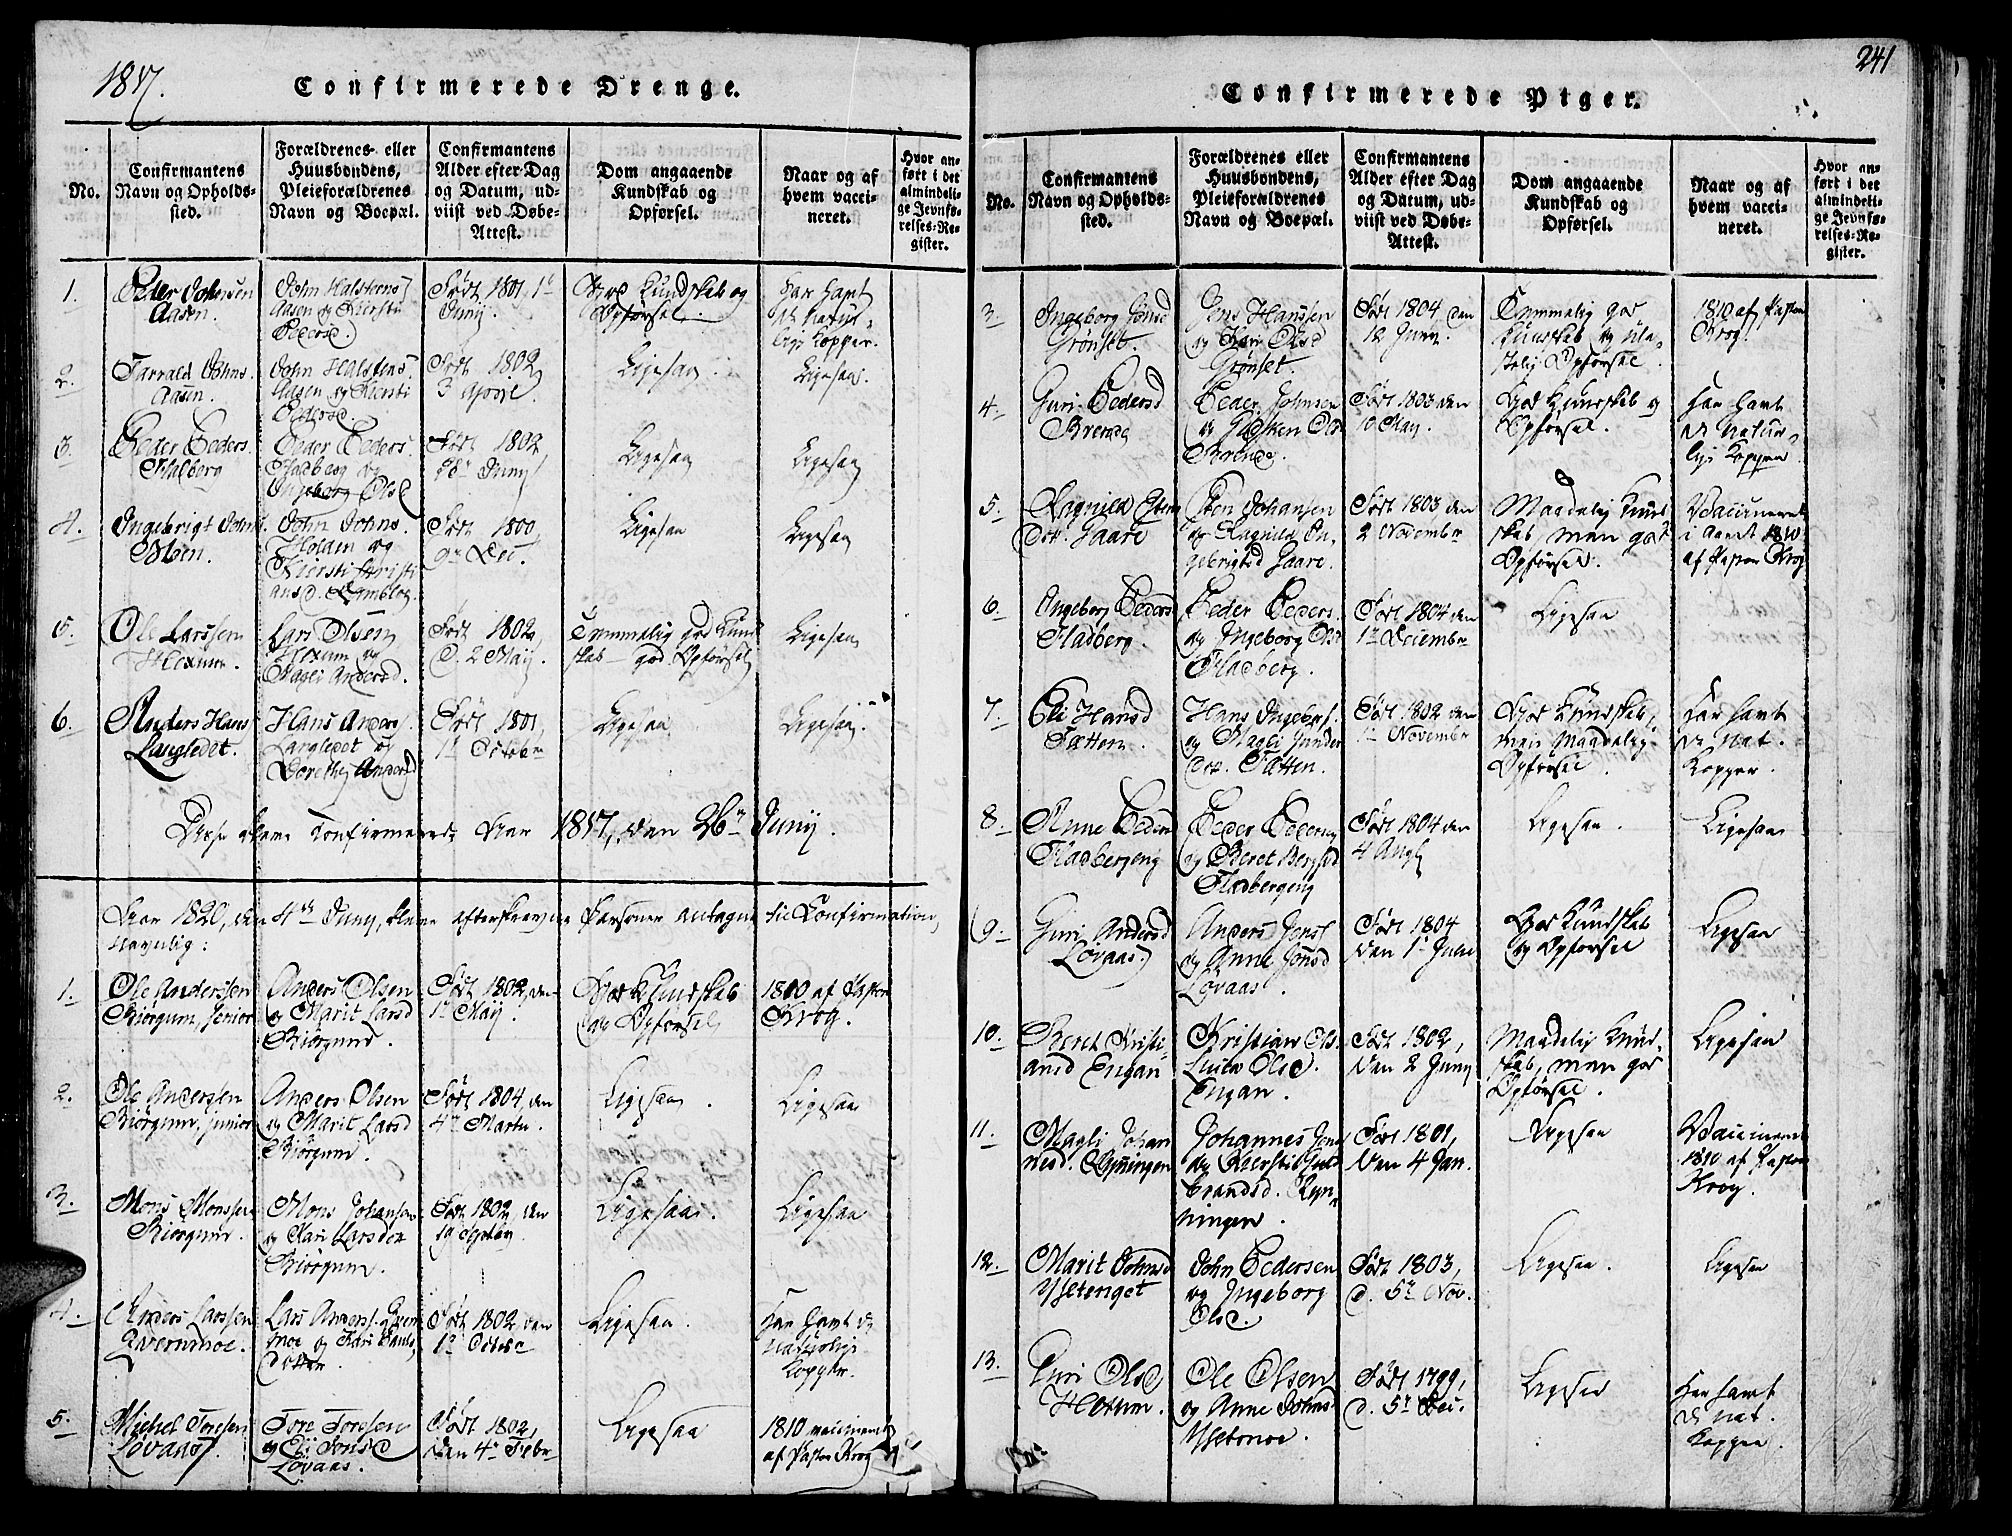 1817.
Confirmerede Drenge.
No.
Confirmantens
Navn og Opholds-
sted.
Forældrenes eller
Huusbondens,
Pleieforældrenes
Navn og Boepæl.
Confirmantens
Alder efter Dag
og Datum, ud-
viist ved Døbe-
Attest.
Dom angaaende
Kundskab og
Opførsel.
Naar og af
hvem vacci-
neret.
Hvor an-
ført i det
almindeli-
ge Jevnfø-
relses-Re-
gister.
1.
Peder Johnsen
Aasen.
John Halstens
Aasen og Kiersti
Pedersd.
Født 1801, 1
Junij.
God Kundskab og
Opførsel.
Har havt
de natur-
lige Kopper.
2.
John Halstens.
Aasen og Kiersti
Pedersd.
Aasen.
Født 1802,
3 April.
Ligesaa.
Ligesaa.
3.
Peder Peders.
Fladberg
Peder Peders.
Fladberg og
Ingeborg Olsd
Født 1802,
Juny
Ligesaa
Ligesaa
4.
Ingebrigt Johns.
Moen.
John Johns.
Holden og
Kiersti Kristi
ansd.
Født 1800,
9 Dec.
Ligesaa
Ligesaa
5.
Ole Larssen
Hoxum.
Lars Olsen
Hoxum og
Magli Andersd.
Født 1802,
d. 2 Maij.
Temmelig god Kund
skab - god Opførsel
Ligesaa
6.
Anders Hans
Langledet.
Hans Anders.
Langledet og
Dorethe Andersd
Født 1801,
1 Octobr
Ligesaa
Ligesaa.
Disse bleve confirmerede Aar 1817, den 26 Junij.
Aar 1820, den 4de Juny, bleve efterskrevne Personer antagne til Confirmation,
navnlig:
1.
Ole Anderssen
Biørgum, senior
Anders Olsen
og Marit Larsd
Biørgum.
Født 1802, den
1 Maij.
God Kundskab
og Opførsel
1810 af Pastor
Krog.
2.
Ole Anderssen
Biørgum, junior
Anders Olsen
og Marit Larsd
Biørgum.
Født 1804, den
4 Martii.
Ligesaa.
Ligesaa
3.
Mons Monssen
Biørgum.
Mons Johansen
og Kari Larsden
Biørgum.
Født 1802, den
19 Septbr
Ligesaa.
Ligesaa
4.
Anders Larssen
Qvernmoe.
Lars Anders. Qvern
moe og Kari Pauls
Datter.
Født 1802 den
1 Octobr
Ligesaa.
Har havt de
naturlige
Kopper.
5.
Michel Toresen
Lovaas.
Tore Toresen
og Eli Jonsd
Lovaas.
Født 1802,
den 4 Febr
Ligesaa
1810 vaccineret
af Pastor Krog
241
Confirmerede Piger.
No.
Confirmantens
Navn og Opholds-
sted.
Forældrenes eller
Huusbondens,
Pleieforældrenes
Navn og Boepæl.
Confirmantens
Alder efter Dag
og Datum, ud-
viist ved Døbe-
Attest.
Dom angaaende
Kundskab og
Opførsel.
Naar og af
hvem vacci-
neret.
Hvor an-
ført i det
almindeli-
ge Jevnfø-
relses-Re-
gister.
3.
Ingeborg Jensd
Grønset.
Jens Hanssen
og Kari Olsd
Grønset.
Født 1804 den
12 Juny.
Temmelig god
Kundskab og ula-
stelig Opførsel.
1810 af Pastor
Krog.
4.
Guri Pedersd
Bremda
Peder Johnsen
og Olsd
Født 1803 den
10 May.
God Kundskab og
Opførsel.
Har havt
de natur-
lige Kopper.
5.
Ragnild Estens
Dot. Gaare
Esten Johansen
og Ragnild In-
gebrigtsd Gaare.
Født 1803 den
2 November
Maadelig Kund
skab, men god
Opførsel.
Vaccineret
i Aaret 1810
af Pastor Krog
6.
Ingeborg Pedersd
Fladberg.
Peder Peders.
og Ingeborg Olsd
Fladberg.
Født 1804 den
1 December
Ligesaa
7.
Eli Hansd
Tætten.
Hans Ingebr.
og Magli Gunder
Dot. Tætten.
Født 1802 den
1 November
God Kundskab,
men Maadelig
Opførsel.
Har havt
de nat.
Kopper.
8.
Anne Peders
Fladbergeng
Peder Peders
og Beret Bersd
Fladbergeng
Født 1804 den
4 Aug
Ligesaa.
Ligesaa
9.
Guri Andersd
Lovaas.
Anders Jons
og Anne Jonsd
Lovaas.
Født 1804
den 1 Juni
God Kundskab
og Opførsel
Ligesaa
10.
Beret Kristi-
ansd Engan
Kristian Ols.
Olsd.
Engan.
Født 1802,
den 2 Juny
Maadelig Kund-
skab, men god
Opførsel.
Ligesaa
11.
Magli Johan
nesd. Rønningen
Johannes Jons
og Kiersti Guld
brandsd. Røn-
ningen.
Født 1801,
den 4 Jan.
Ligesaa
Vaccineret
1810 af Pastor
Krog.
12.
Marit Johnsd
Ysetenget
John Pedersen
og Ingeborg
Olsd.
Født 1803,
d. 5 Nov.
Ligesaa.
Ligesaa
13.
Guri Olsd
Hoxum.
Ole Olsen
og Anne Johns
Født 1799,
d. 5 Dec.
Ligesaa
Har havt
de nat.
Kopper.